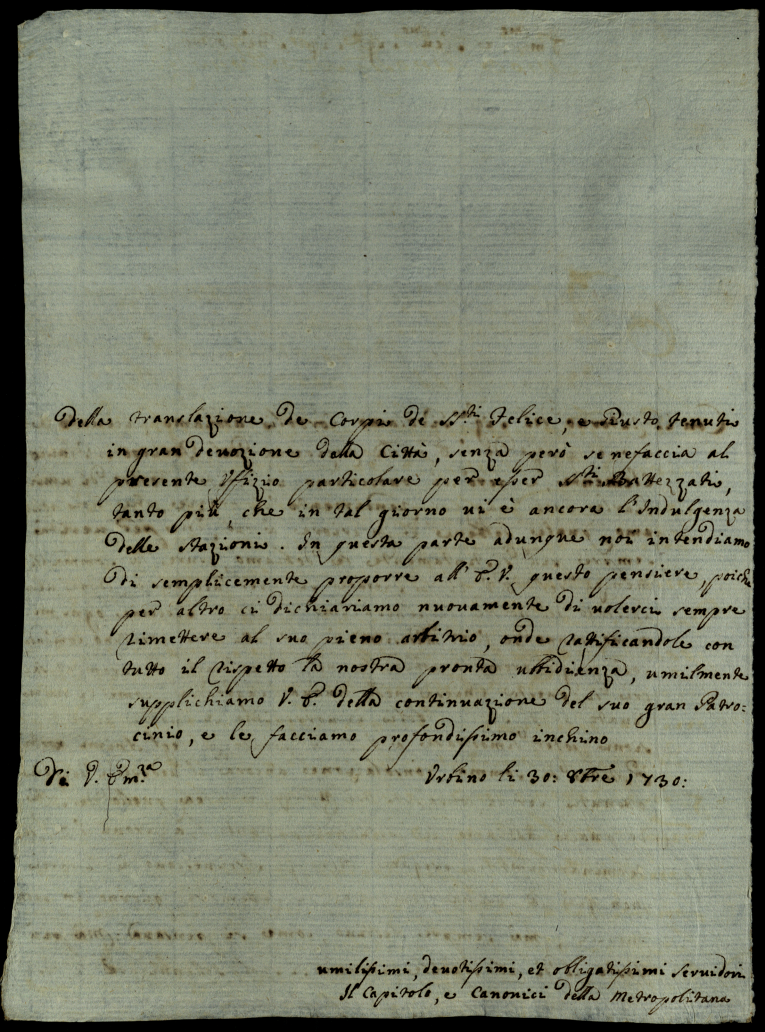 della translazione de Corpi de SS.ti Felice, e Giusto tenuti
in gran devozione della Città, senza però se ne faccia al
presente Uffizio particolare per esser SS.ti Battezzati,
tanto più, che in tal giorno vi è ancora l'Indulgenza
delle stazioni. In questa parte adunque noi intendiamo
di semplicemente proporre all' E. V. questo pensiere, poiche
per altro ci dichiariamo nuovamente di volerci sempre
rimettere al suo pieno arbitrio, onde ratificandole con
tutto il rispetto la nostra pronta ubidianza, umilmente
supplichiamo V. E. della continuazione del suo gran Patro:
cinio, e le facciamo profondissimo inchino
Di V. Em.za Urbino li 30: 8bre 1730:
umilissimi, devotissimi, et obligatissimi servidori
Il Capitolo, e Canonici della Metropolitana